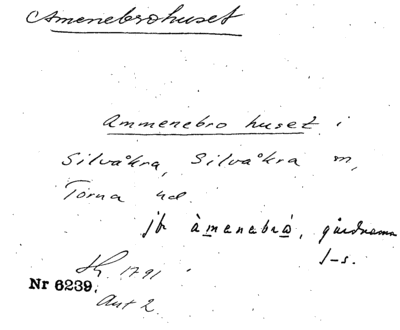 Amenebrohuset
Ammenebro huset i
Silvåkra, Silvåkra m,
Torna hd.
jfr àmenebró, gårdnamn
1791
Nr 6239.
Ant 2.